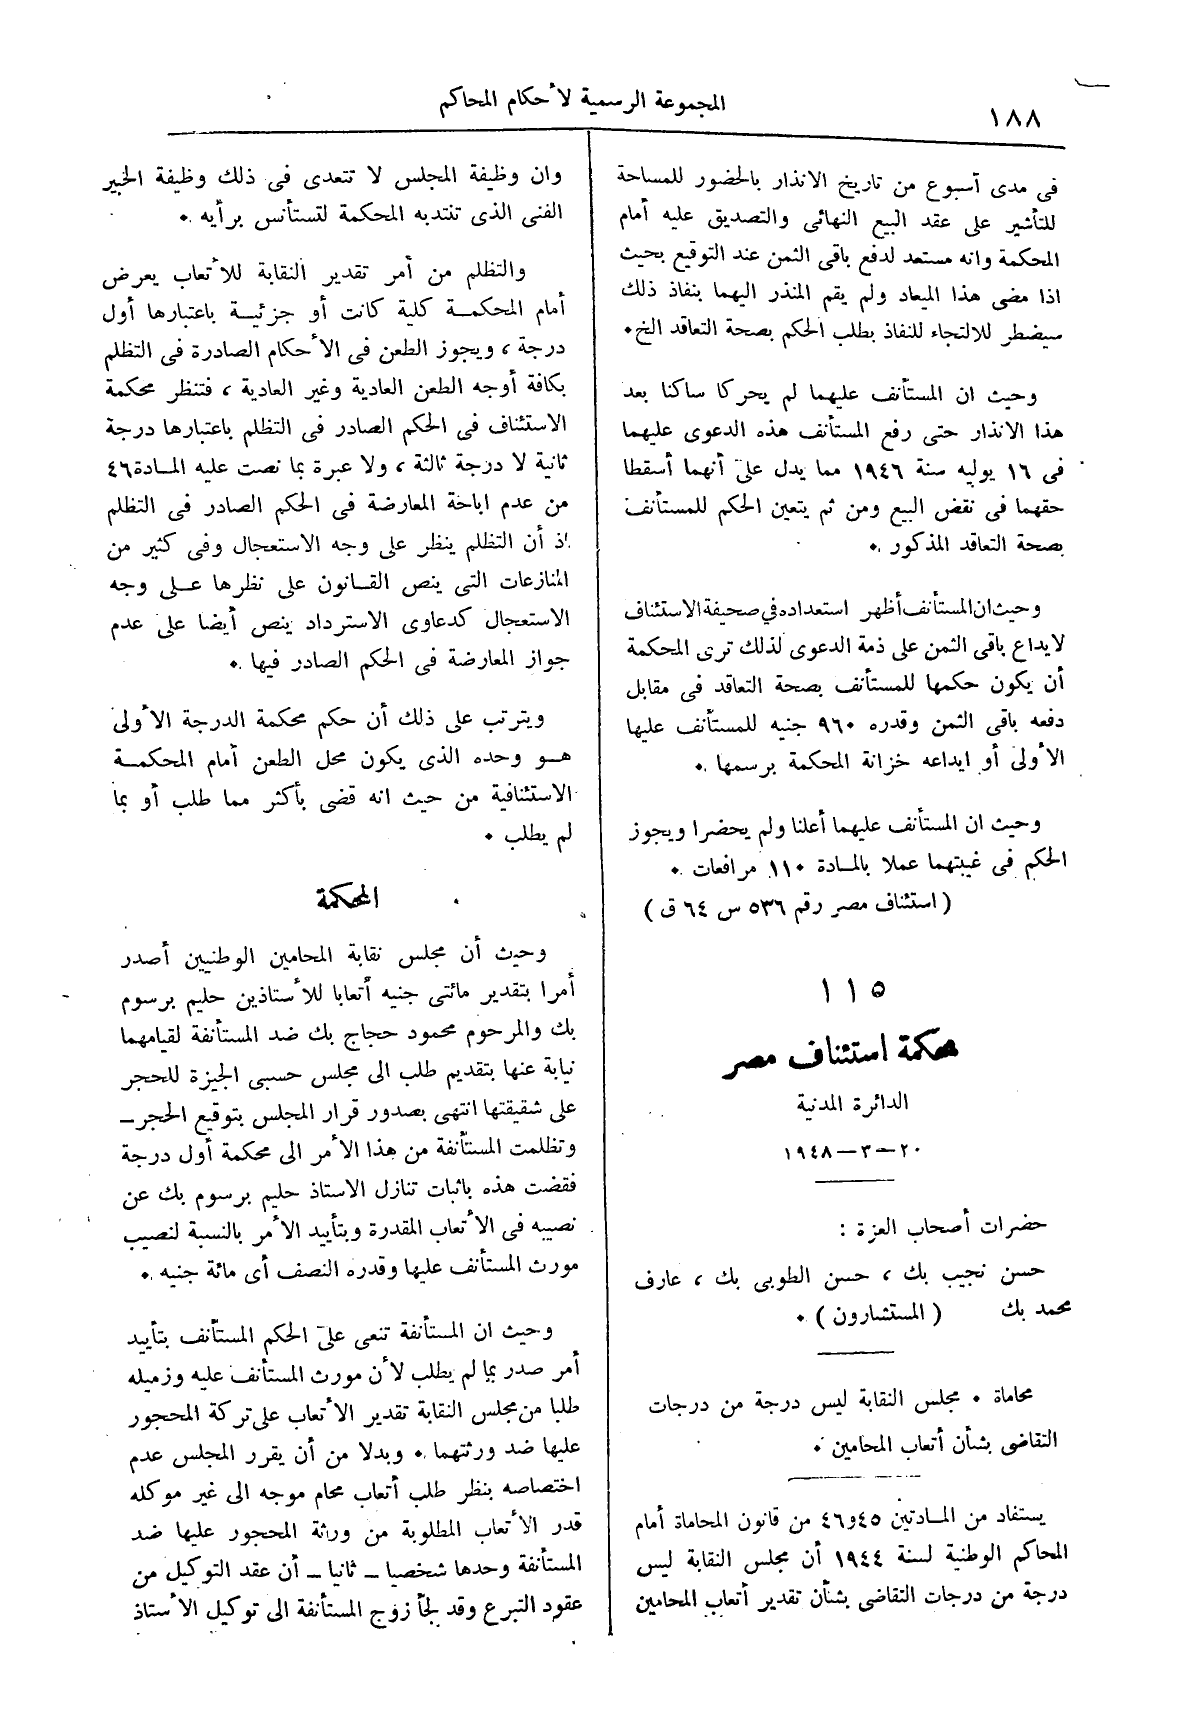 ١٨٨
المجموعة الرسمية لأحكام المحاكم
فى مدى أسبوع من تاريخ الانذار بالحضور للمساحة
للتأشير على عقد البيع النهائى والتصديق عليه أمام
المحكمة وانه مستعد لدفع باقى الثمن عند التوقيع بحيث
اذا مضى هذا الميعاد ولم يقم المنذر اليهما بنفاذ ذلك
سيضطر للالتجاء للنفاذ بطلب الحكم بصحة التعاقد الخ.
وحيث ان المستأنف عليهما لم يحركا ساكنا بعد
هذا الانذار حتى رفع المستأنف هذه الدعوى عليهما
فى ١٦ يوليه سنة ١٩٤٦ مما يدل على أنهما أسقطا
حقهما فى نقض البيع ومن ثم يتعين الحكم للمستأنف
بصحة التعاقد المذكور .
وحيث ان المستأنف أظهر استعداده في صحيفة الاستئناف
لايداع باقى الثمن على ذمة الدعوى لذلك ترى المحكمة
أن يكون حكمها للمستأنف بصحة التعاقد فى مقابل
دفعه باقى الثمن وقدره ٩٦٠ جنيه للمستأنف عليها
الأولى أو ايداعه خزانة المحكمة برسمها .
وحيث ان المستأنف عليهما أعلنا ولم يحضرا ويجوز
الحكم فى غيبتهما عملا بالمادة ١١٠ مرافعات .
( استئناف مصر رقم ٥٣٦ س ٦٤ ق )
١١٥
محكمة استئناف مصر
الدائرة المدنية
٢٠ — ٣ — ١٩٤٨
حضرات أصحاب العزة :
حسن نجيب بك ، حسن الطوبى بك ، عارف
محمد بك ( المستشارون ) .
محاماة . مجلس النقابة ليس درجة من درجات
التقاضى بشأن أتعاب المحامين .
يستفاد من المادتين ٤٥و٤٦ من قانون المحاماة أمام
المحاكم الوطنية لسنة ١٩٤٤ أن مجلس النقابة ليس
درجة من درجات التقاضى بشأن تقدير أتعاب المحامين
وان وظيفة المجلس لا تتعدى فى ذلك وظيفة الخبير
الفنى الذى تنتدبه المحكمة لتستأنس برأيه .
والتظلم من أمر تقدير النقابة للأتعاب يعرض
أمام المحكمة كلية كانت أو جزئية باعتبارها أول
درجة ، ويجوز الطعن فى الأحكام الصادرة فى التظلم
بكافة أوجه الطعن العادية وغير العادية ، فتنظر محكمة
الاستئناف فى الحكم الصادر فى التظلم باعتبارها درجة
ثانية لا درجة ثالثة ، ولا عبرة بما نصت عليه المادة ٤٦
من عدم اباحة المعارضة فى الحكم الصادر فى التظلم
اذ أن التظلم ينظر على وجه الاستعجال وفى كثير من
المنازعات التى ينص القانون على نظرها على وجه
الاستعجال كدعاوى الاسترداد ينص أيضا على عدم
جواز المعارضة فى الحكم الصادر فيها .
ويترتب على ذلك أن حكم محكمة الدرجة الأولى
هو وحده الذى يكون محل الطعن أمام المحكمة
الاستئنافية من حيث انه قضى بأكثر مما طلب أو بما
لم يطلب .
المحكمة
وحيث أن مجلس نقابة المحامين الوطنيين أصدر
أمرا بتقدير مائتى جنيه أتعابا للأستاذين حليم برسوم
بك والمرحوم محمود حجاج بك ضد المستأنفة لقيامهما
نيابة عنها بتقديم طلب الى مجلس حسبى الجيزة للحجر
على شقيقتها انتهى بصدور قرار المجلس بتوقيع الحجر —
وتظلمت المستأنفة من هذا الأمر الى محكمة أول درجة
فقضت هذه باثبات تنازل الاستاذ حليم برسوم بك عن
نصيبه فى الأتعاب المقدرة وبتأييد الأمر بالنسبة لنصيب
مورث المستأنف عليها وقدره النصف أى مائة جنيه .
وحيث ان المستأنفة تنعى على الحكم المستأنف بتأييد
أمر صدر بما لم يطلب لأن مورث المستأنف عليه وزميله
طلبا من مجلس النقابة تقدير الأتعاب على تركة المحجور
عليها ضد ورثتهما . وبدلا من أن يقرر المجلس عدم
اختصاصه بنظر طلب أتعاب محام موجه الى غير موكله
قدر الأتعاب المطلوبة من ورثة المحجور عليها ضد
المستأنفة وحدها شخصيا — ثانيا — أن عقد التوكيل من
عقود التبرع وقد لجأ زوج المستأنفة الى توكيل الأستاذ